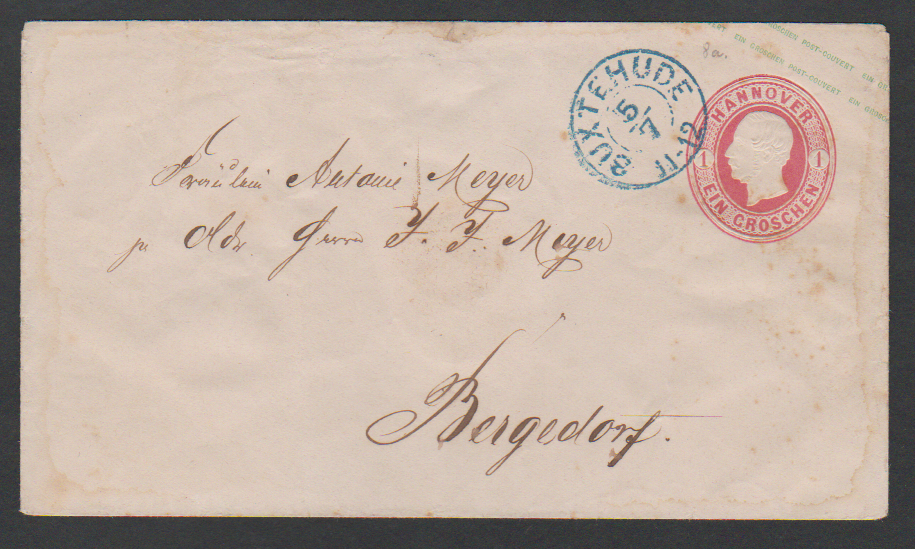 EIN GROSCHEN POST-COUVERT EIN GROSCHEN
GROSCHEN POST-COUVERT
8a.
BUXTEHUDE
5/7
11-12
HANNOVER
1 1
EIN GROSCHEN
Fräulein Antonie Meyer
pr Adr Herrn J. F. Meyer
Bergedorf.